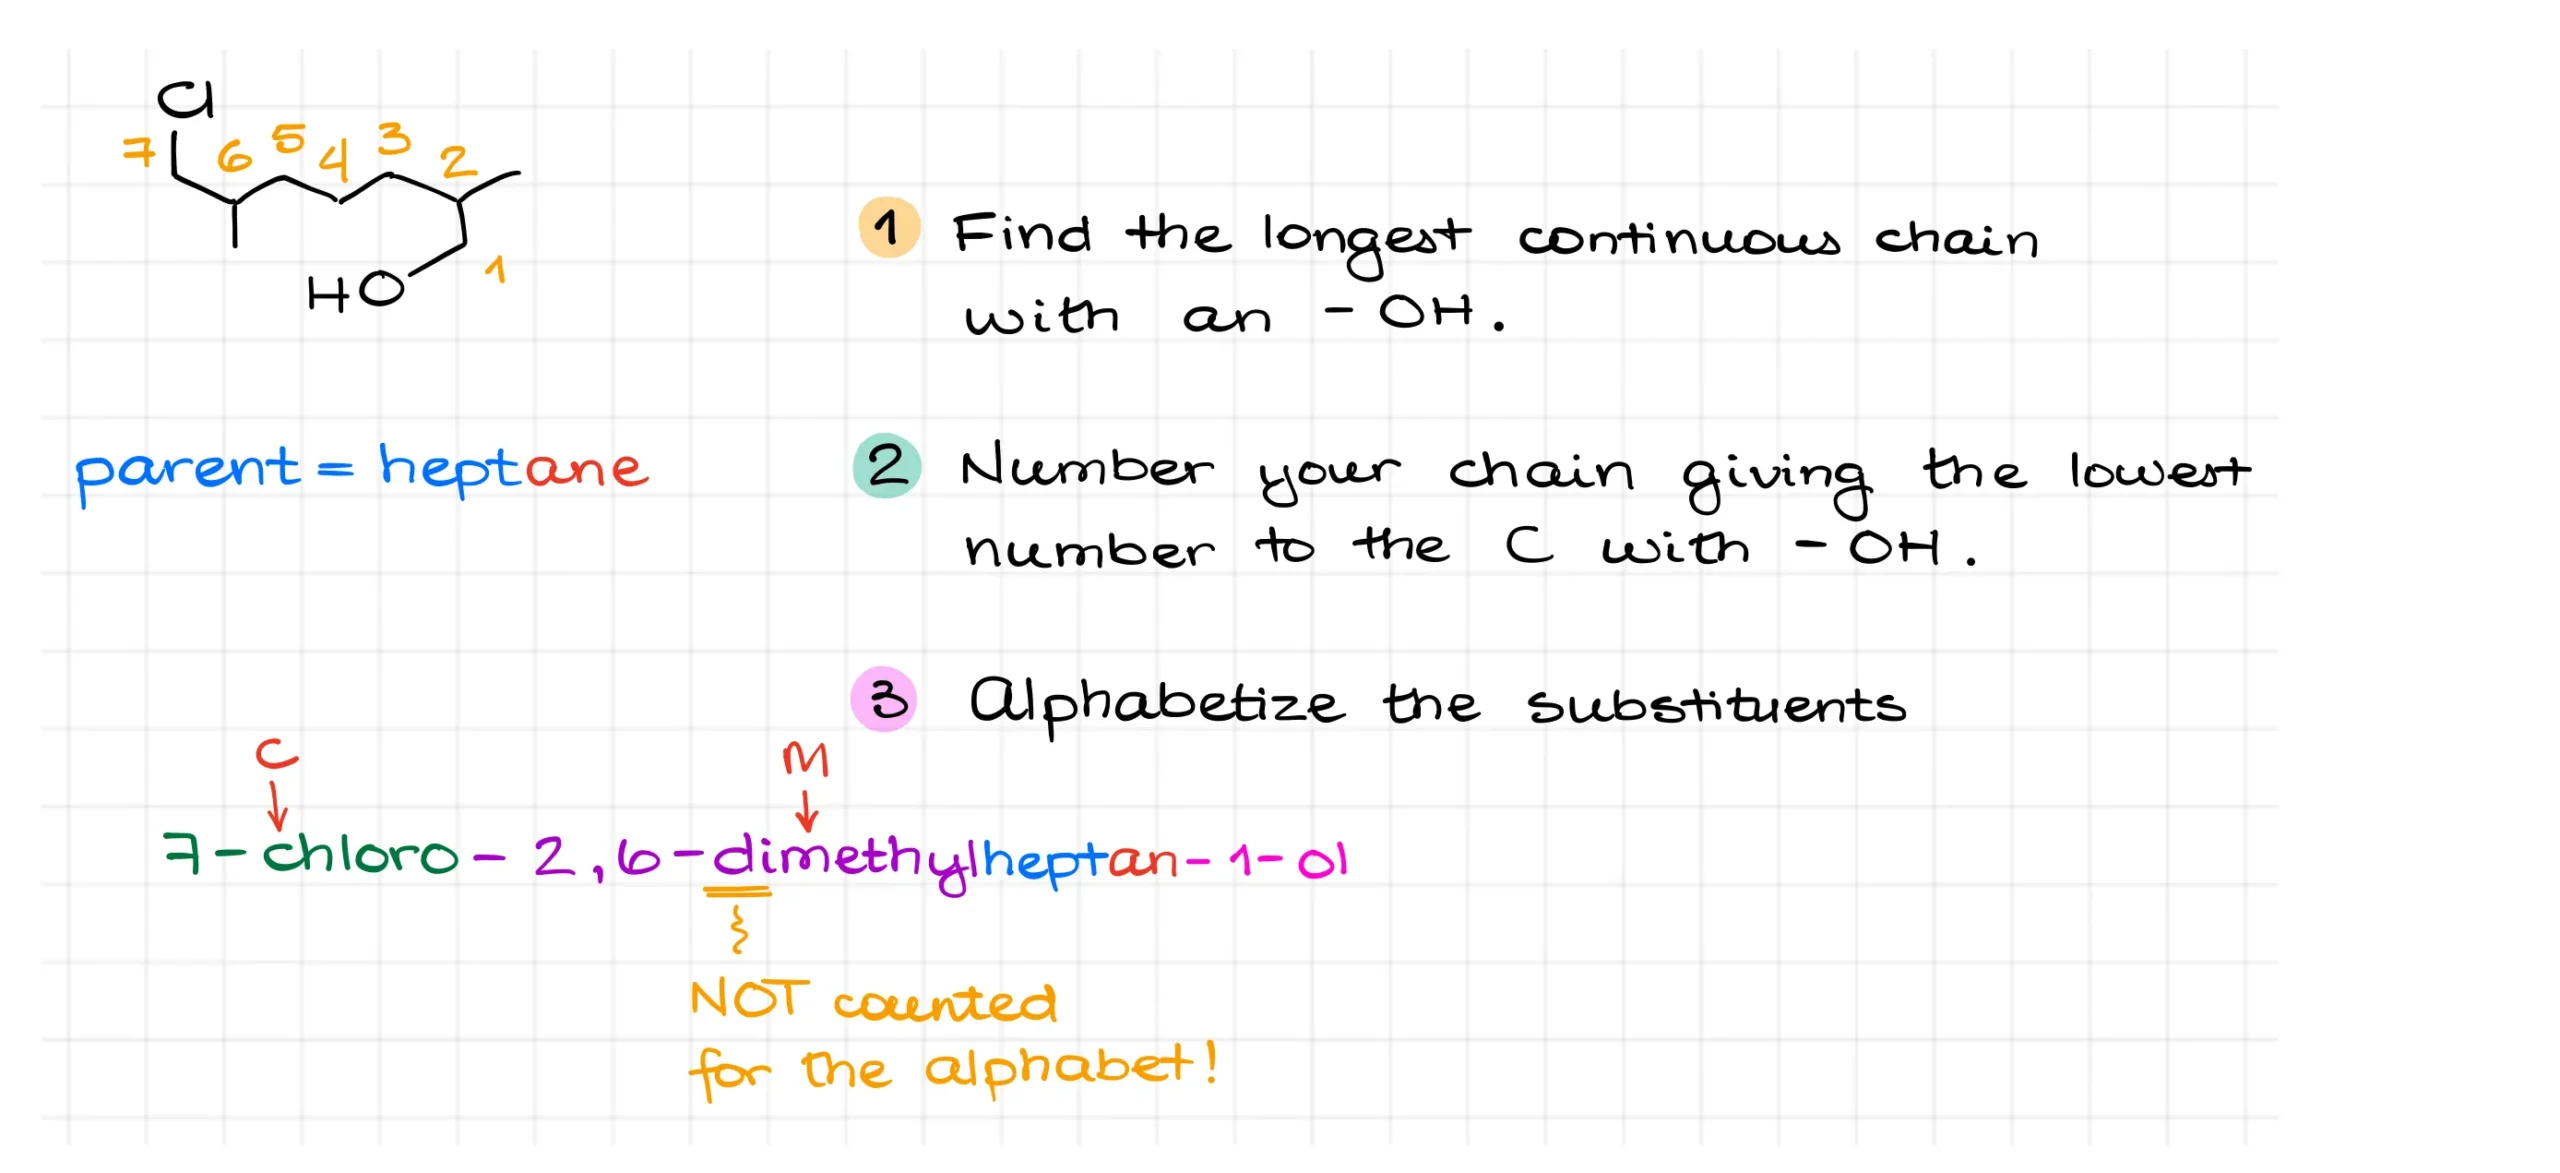 Cl
7 6 5 4 3 2
HO 1
1 Find the longest continuous chain
with an -OH.
parent = heptane
2 Number your chain giving the lowest
number to the C with -OH.
3 Alphabetize the substituents
C M
7-chloro-2,6-dimethylheptan-1-ol
NOT counted
for the alphabet!